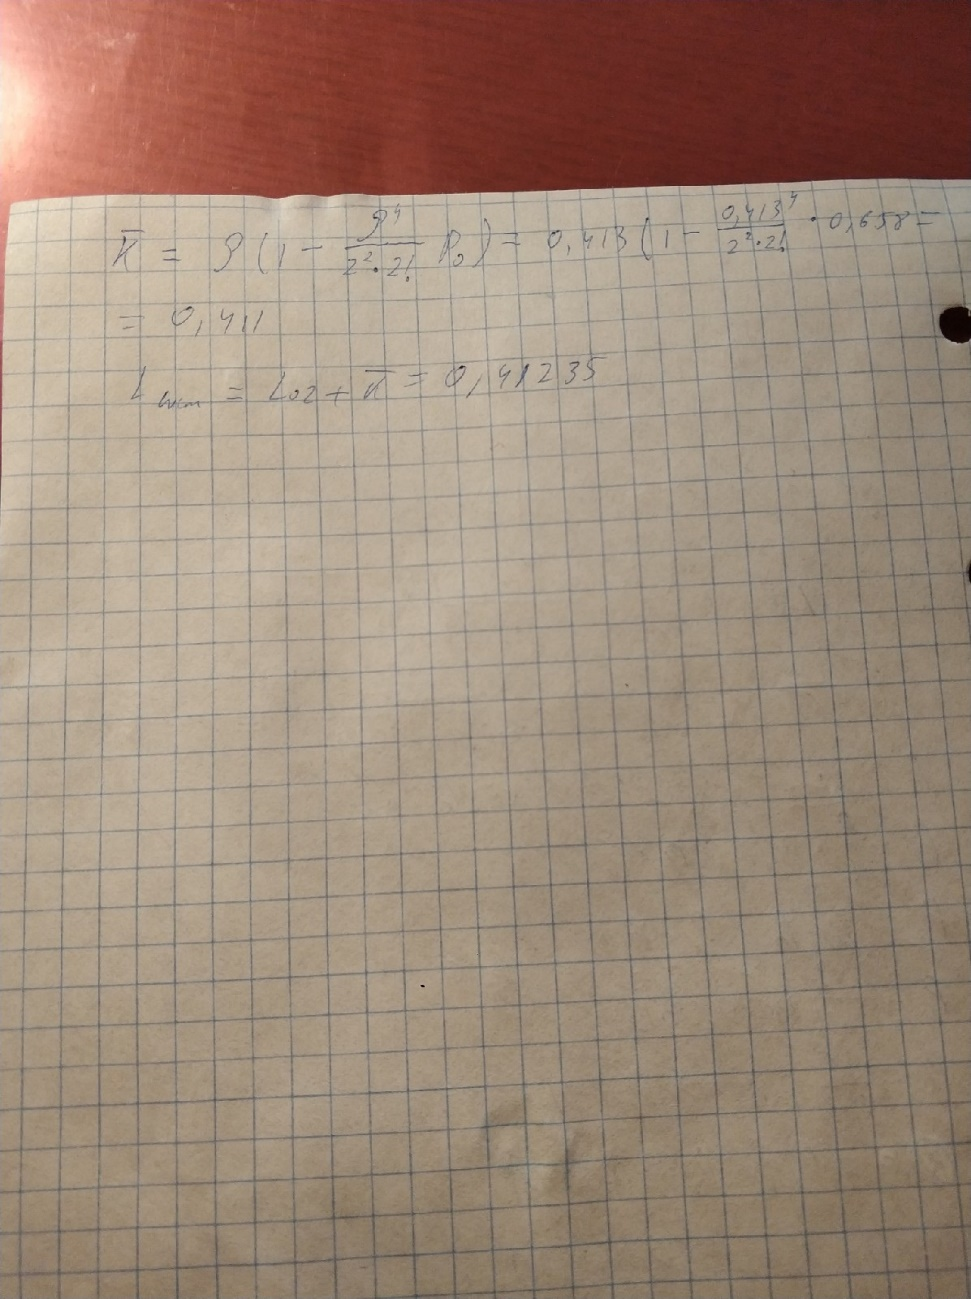 K̄ = ρ(1 - ρ⁴/(2²·2!) P₀) = 0,413(1 - 0,413⁴/(2²·2!) · 0,658 =
= 0,411
L сист = Lоz + K̄ = 0,41235